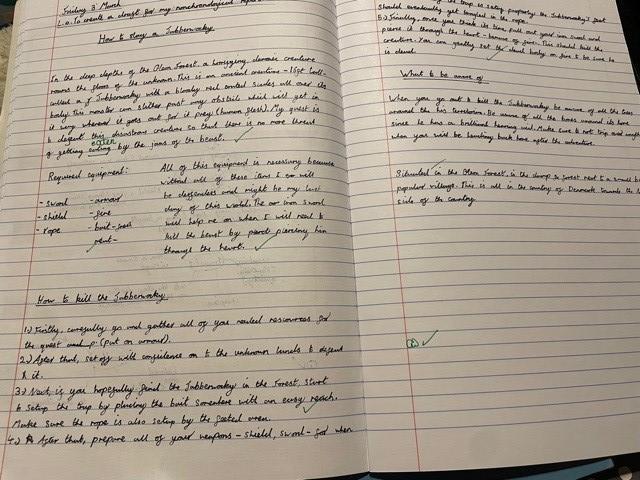 Friday 3 March
L.o. To create a draft for my nonchronological report
How to slay a Jubberwocky
In the deep depths of the Olem Forest, a horrifying, demonic creature
roams the floors of the unknown. This is an ancient creature - 15ft tall -
called a Jubberwocky with a bloody red coated scales all over its
body. This monster can slither past any obsticle which will get in
it way whenever it goes out for it prey (human flesh). My quest is
to defeat this disastrous creature so that there is no more threat
eaten
of getting eating by the jaws of the beast.
Required equipment:
- sword - armour
- shield - gene
- rope - bait - meat
meat -
All of this equipment is necessary because
without all of these items I will
be defenseless and might be my last
day of this world. The iron sword
will help me on when I will need to
kill the beast by pierciing him
through the heart.
How to kill the Jubberwocky
1.) Firstly, carefully go and gather all of you needed resources for
the quest and p (put on armour).
2.) After that, set off with confidence on to the unknown lands to defeat
it.
3.) Next, if you hopefully find the Jubberwocky in the Forest, start
to setup the trap by placing the bait somewhere with an easy reach.
Make sure the rope is also setup by the area.
4.) After that, prepare all of your weapons - shield, sword - for when
the trap is setup properly, the Jubberwocky's feet
should eventually get tangled in the rope.
5.) Finally, once you think its time, pull out your iron sword and
pierce it through the heart - beware of jaws. This should kill the
creature. You can gently set the devil body on fire to be sure he
is dead.
What to be aware of
When you go out to kill the Jubberwocky be aware of all the trees
around the his territory. Be aware of all the bones around its home
since he has a brilliant hearing aid. Make sure to not trip over anything
when your will be heading back home after the adventure.
Situated in the Olem Forest, in the damp forest next to a small but
populous village. This is all in the country of Denmark towards the
side of the country.